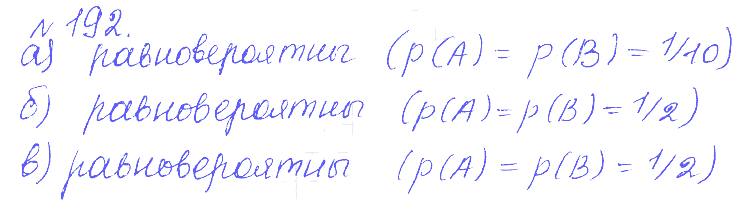 № 192.
а) равновероятны (p(A) = p(B) = 1/10)
б) равновероятны (p(A) = p(B) = 1/2)
в) равновероятны (p(A) = p(B) = 1/2)